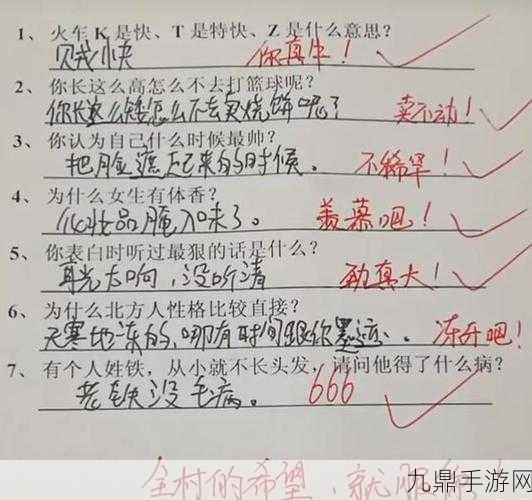 1、火车 K 是快、T 是特快、Z 是什么意思?
贼快 你真牛!
2、你长这么高怎么不去打篮球呢?
你长这么矮怎么不去卖烧饼呢? 卖不动!
3、你认为自己什么时候最帅?
把脸遮起来的时候。 不稀罕!
4、为什么女生有体香?
化妆品腌入味了。 羡慕吧!
5、你表白时听过最狠的话是什么?
耳光太响,没听清 劲真大!
6、为什么北方人性格比较直接?
天寒地冻的,哪有时间跟你墨迹。 冻开吧!
7、有个人姓铁,从小就不长头发,请问他得了什么病?
老铁没毛病。 666
全村的希望,就
九鼎手游网